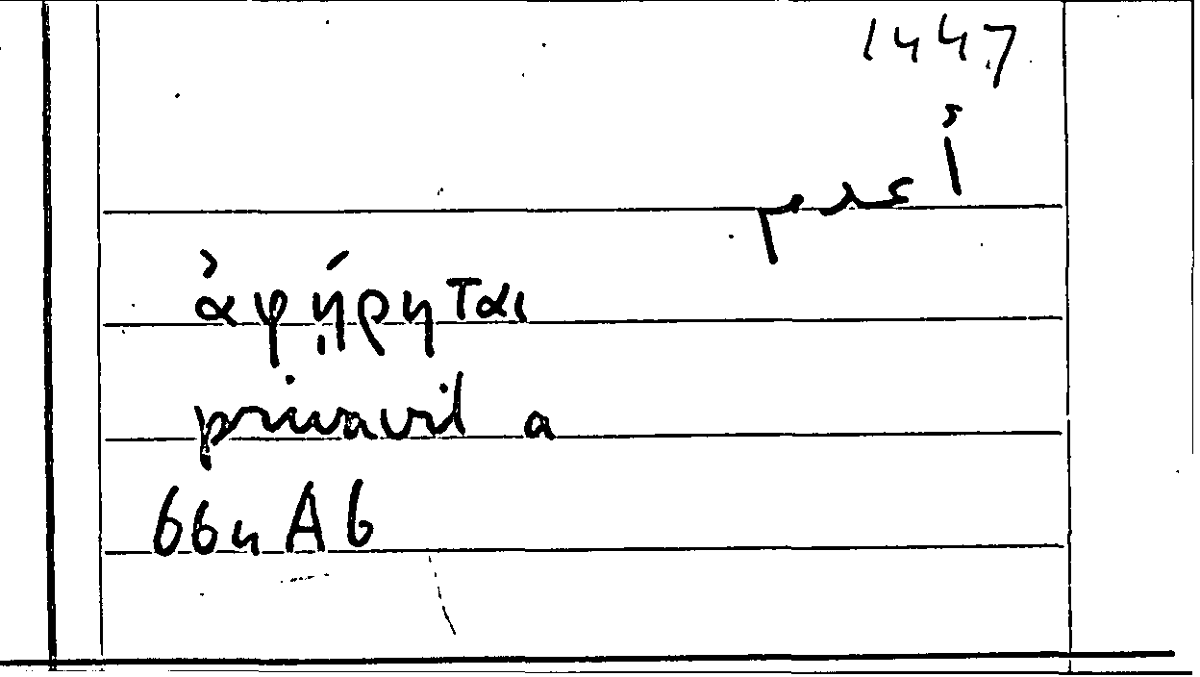 1447
أعدم
ἀφῄρηται
privavit a
664 A 6